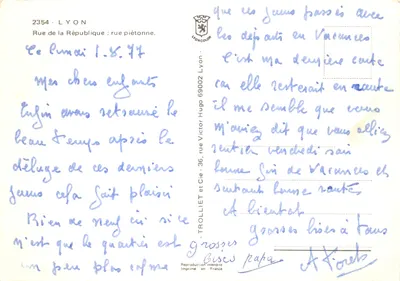 2354 - LYON
Rue de la République : rue piétonne.
Ce lundi 1.8.77
Mes chers enfants
Enfin avons retrouvé le
beau temps après le
déluge de ces derniers
jours cela fait plaisir
Rien de neuf ici si ce
n'est que le quartier est
un peu plus calme
que ces jours passés avec
les départs en Vacances
C'est ma dernière carte
car elle resterait en route
il me semble que vous
m'aviez dit que vous alliez
rentrer vendredi soir
bonne fin de Vacances et
surtout bonne santé
A bientôt
grosses bises à tous
grosses
bises papa
TROLLIET et Cie - 36, rue Victor Hugo 69002 Lyon
Reproduction interdite
Imprimé en France